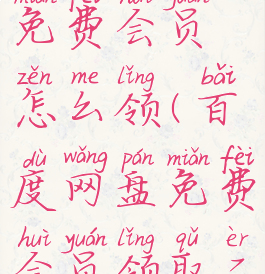 miǎn fèi huì yuán
免费会员
zěn me lǐng bǎi
怎么领(百
dù wǎng pán miǎn fèi
度网盘免费
huì yuán lǐng qǔ èr
会员领取